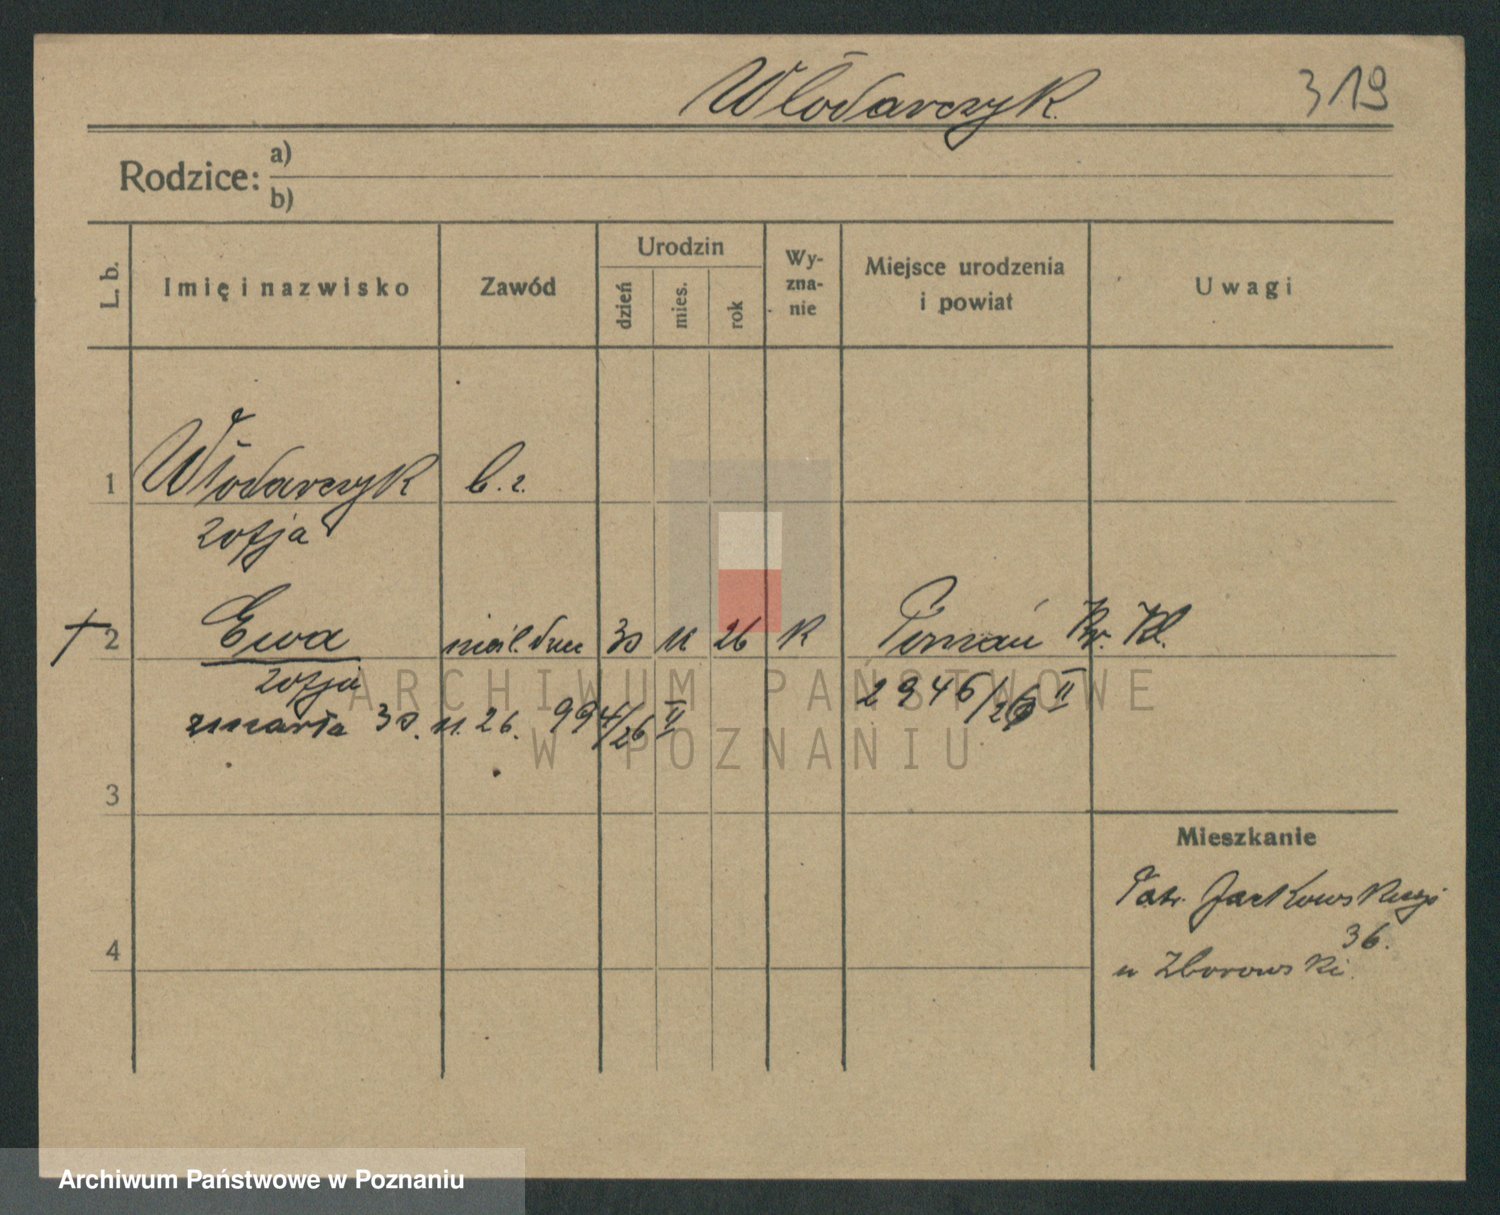 Włodarczyk. 319
Rodzice: a)
b)
L. b. Imię i nazwisko Zawód Urodzin dzień mies. rok Wy-zna-nie Miejsce urodzenia i powiat Uwagi
1 Włodarczyk b. z.
Zofja
+ 2 Ewa 30 11 26 K Poznań Kr. Kl.
Zofja 2946/26 II
zmarła 30. 11. 26. 994/26 II
3
Mieszkanie
Patr. Jackowskiego
36.
4
u Zborowski.
ARCHIWUM PAŃSTWOWE
W POZNANIU
Archiwum Państwowe w Poznaniu